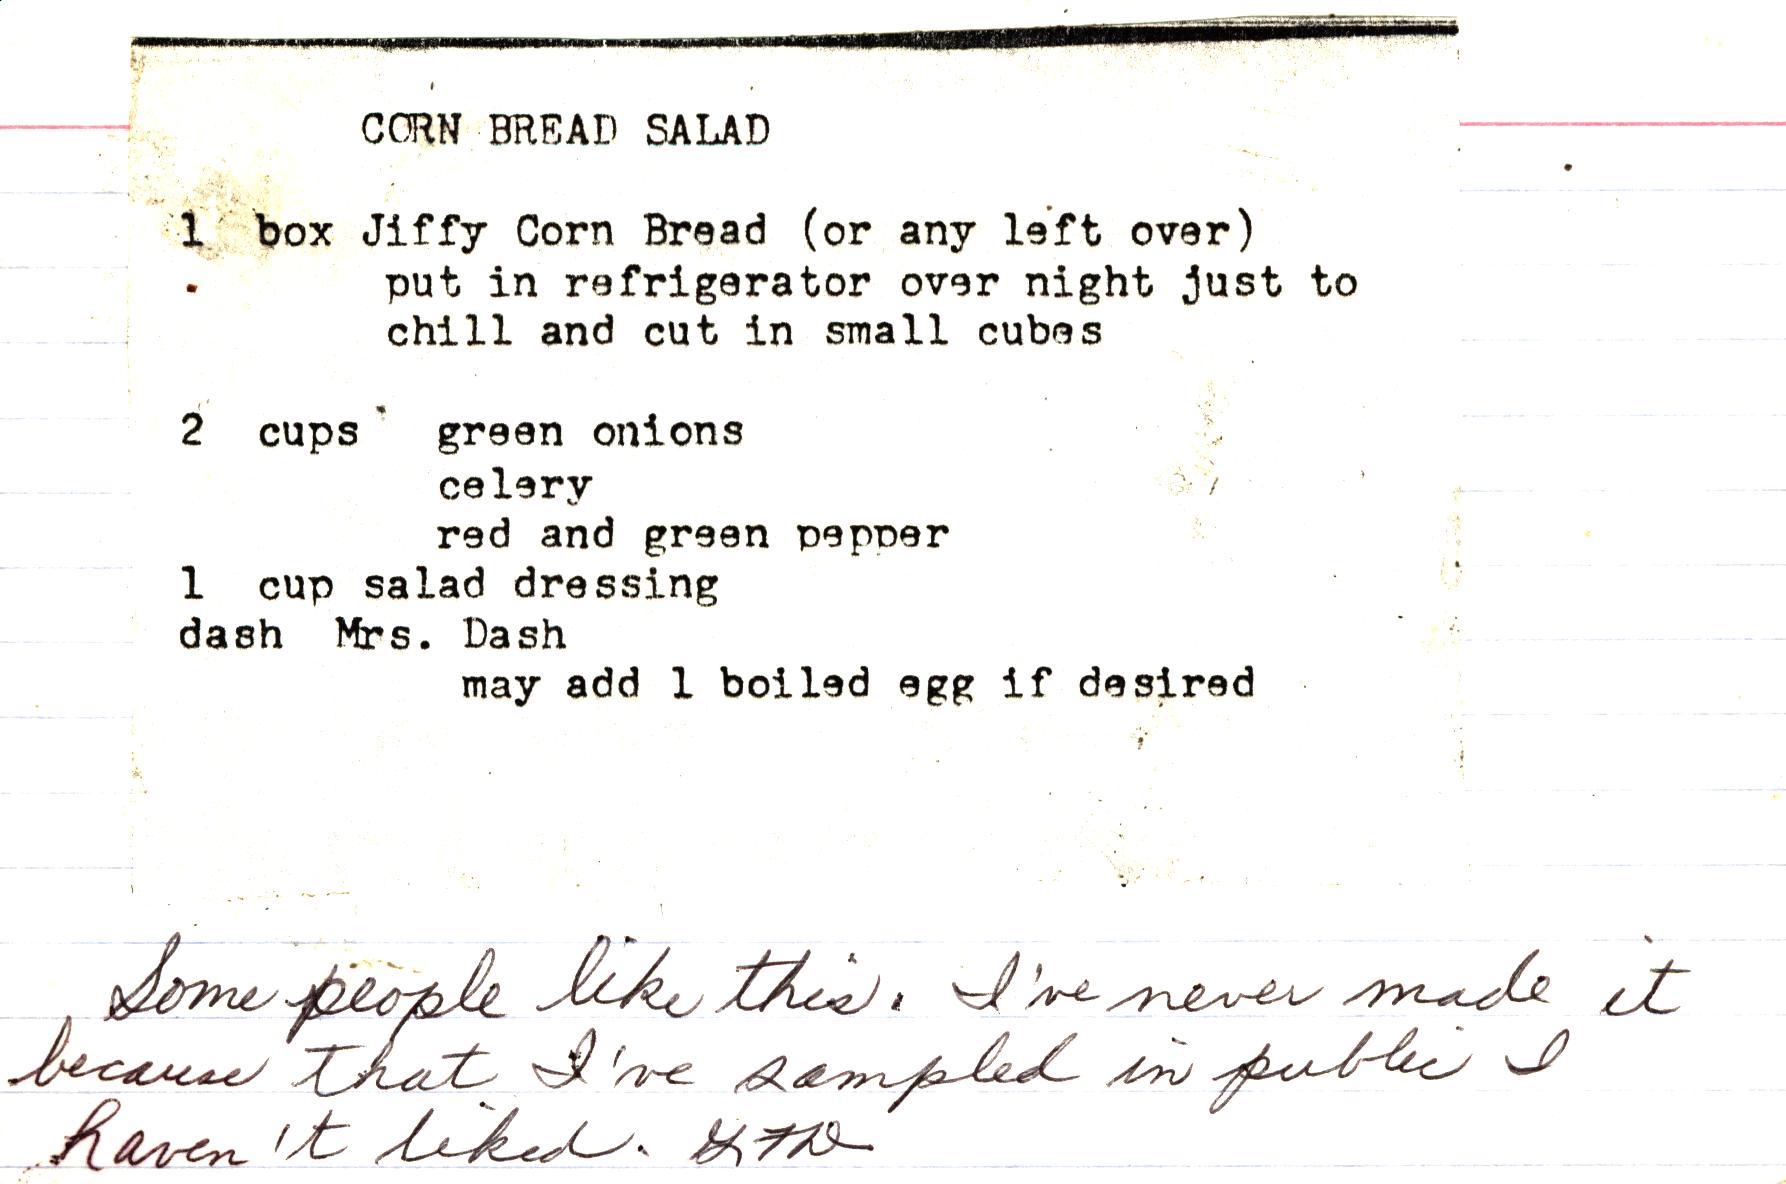 CORN BREAD SALAD
1 box Jiffy Corn Bread (or any left over)
put in refrigerator over night just to
chill and cut in small cubes
2 cups green onions
celery
red and green pepper
1 cup salad dressing
dash Mrs. Dash
may add 1 boiled egg if desired
Some people like this. I've never made it
because that I've sampled in public I
haven't liked.